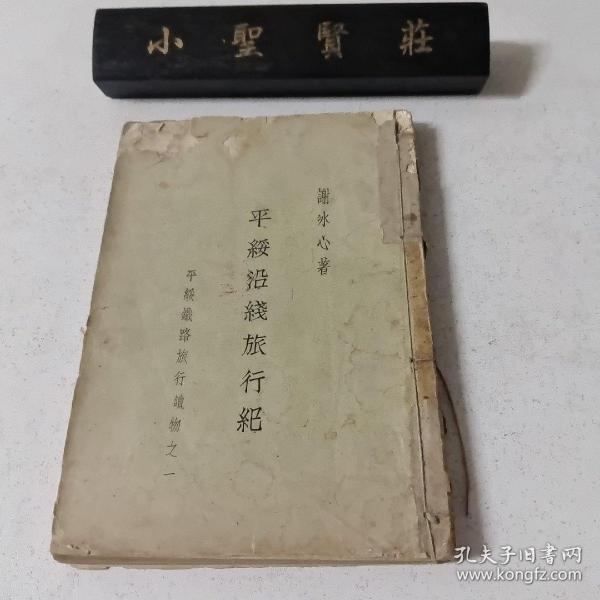 小聖賢莊
謝冰心著
平綏沿綫旅行紀
平綏鐵路旅行讀物之一
孔夫子旧书网
www.kongfz.com